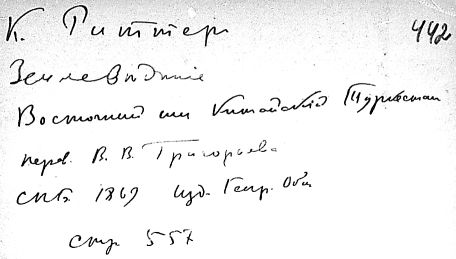 К. Риттер 442
Землеведение
Восточный или Китайский Туркестан
перев. В. В. Григорьева
СПб 1869 изд. Геогр. Общ
стр 557